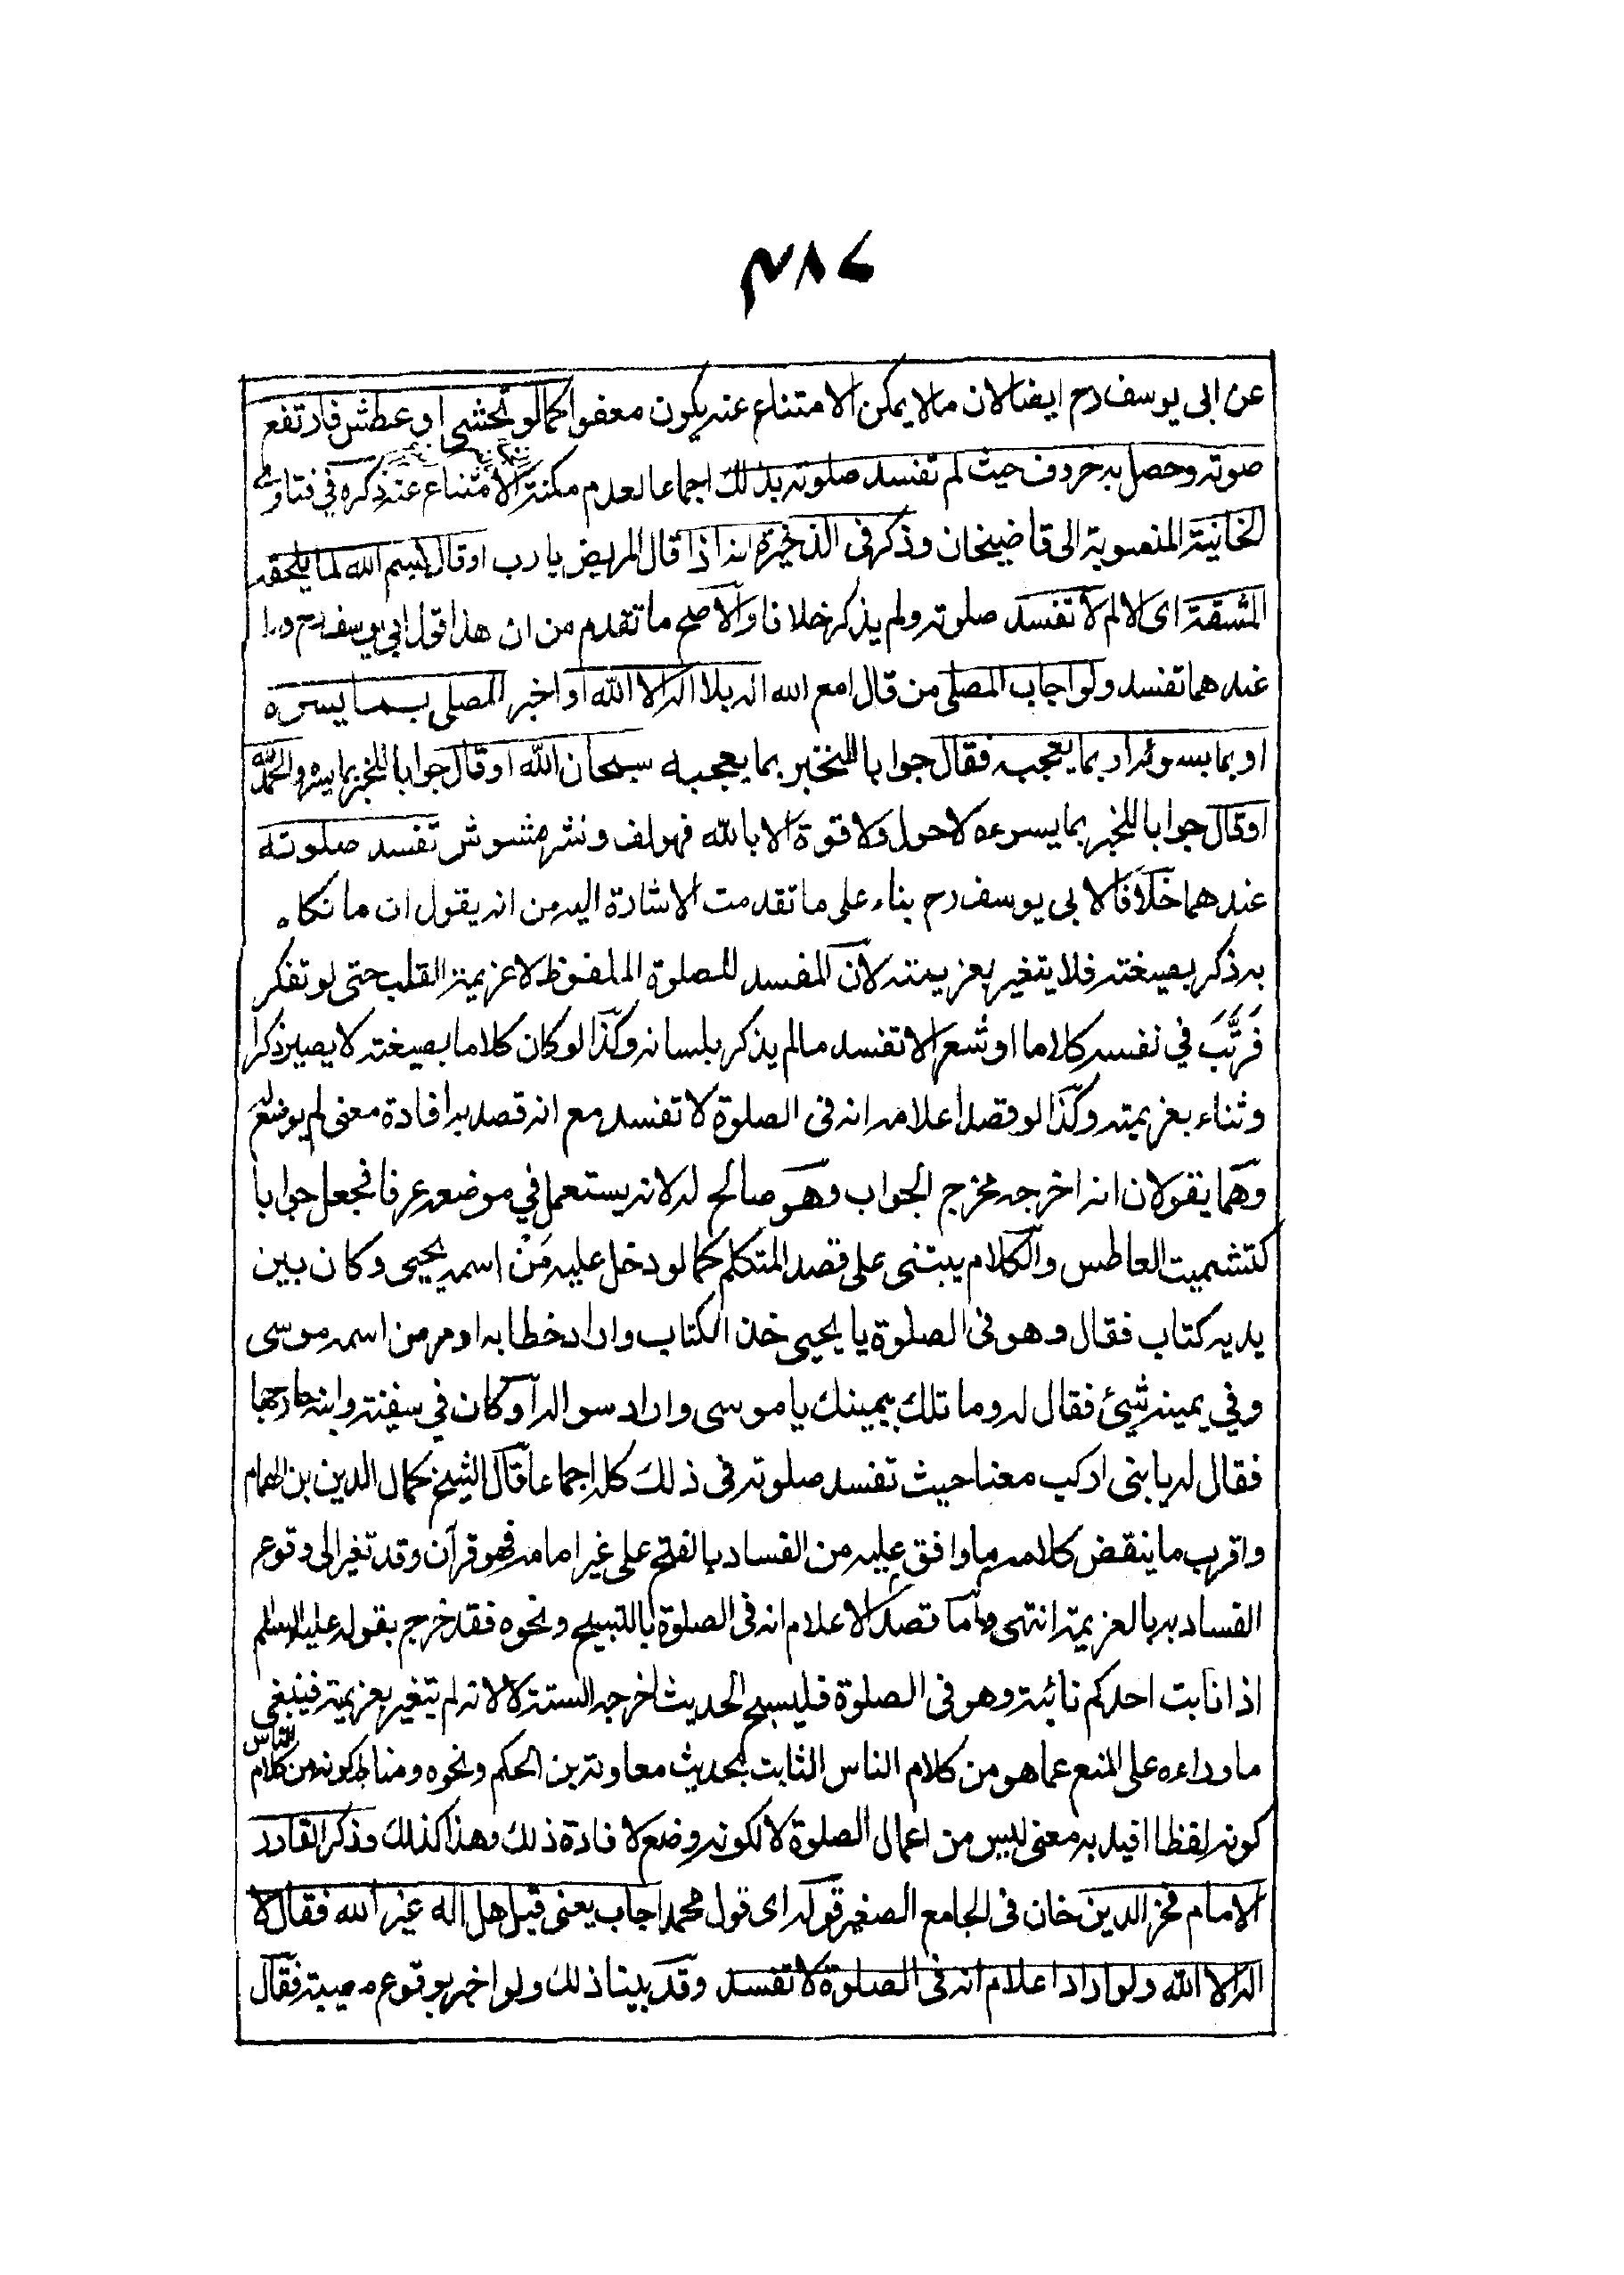 ٣٨٤
عن ابى يوسف رح ايضا لان ما لا يمكن الامتناع عنه يكون معفوا كما لو تجشى او عطش فارتفع
صوته وحصل به حروف حيث لم تفسد صلوته بذلك اجماعا لعدم مكنة الامتناع عنه ذكره في فتاوى
الخانية المنسوبة الى قاضيخان وذكر فى الذخيرة انه اذا قال المريض يا رب او قال بسم الله لما يلحقه
المشقة اى الالم لا تفسد صلوته ولم يذكر خلافا والاصح ما تقدم من ان هذا قول ابى يوسف رح و
عندهما تفسد ولو اجاب المصلى من قال امع الله اله بلا اله الا الله او اخبر المصلى بما يسره
او بما يسوئه او بما يعجبه فقال جوابا للمخبر بما يعجبه سبحان الله او قال جوابا للمخبر بما يسره والحمد لله
او قال جوابا للمخبر بما يسوءه لا حول ولا قوة الا بالله فهو لف ونشر مشوش تفسد صلوته
عندهما خلافا لابى يوسف رح بناء على ما تقدمت الاشارة اليه من انه يقول ان ما تكلم
به ذكر بصيغته فلا يتغير بعزيمته لان المفسد للصلوة الملفوظ لا عزيمة القلب حتى لو تفكر
فَرَتَّبَ في نفسه كلاما او شعرا لا تفسد ما لم يذكر بلسانه وكذا لو كان كلاما بصيغته لا يصير ذكرا
وثناء بعزيمته وكذا لو قصد اعلامه انه فى الصلوة لا تفسد مع انه قصد به افادة معنى لم يوضع له
وهما يقولان انه اخرجه مخرج الجواب وهو صالح له لانه يستعمل في موضعه عرفا فجعل جوابا
كتشميت العاطس والكلام يبتنى على قصد المتكلم كما لو دخل عليه مَنْ اسمه يحيى وكان بين
يديه كتاب فقال وهو فى الصلوة يا يحيى خذ الكتاب واراد خطابه او مر من اسمه موسى
وفي يمينه شيئ فقال له وما تلك بيمينك يا موسى واراد سواله او كان في سفينة وابنه خارجها
فقال له يا بنى اركب معنا حيث تفسد صلوته فى ذلك كله اجماعا قال الشيخ كمال الدين بن الهمام
واقرب ما ينقض كلامه ما وافق عليه من الفساد بالفتح على غير امامه فهو قرآن وقد تغير الى وقوع
الفساد به بالعزيمة انتهى واما قصد الاعلام انه فى الصلوة بالتسبيح ونحوه فقد خرج بقوله عليه السلم
اذا نابت احدكم نائبة وهو فى الصلوة فليسبح الحديث اخرجه الستة لا لانه لم يتغير بعزيمته فيبقى
ما وراءه على المنع عما هو من كلام الناس الثابت بحديث معاوية بن الحكم ونحوه ومناط كونه من كلام الناس
كونه لفظا افيد به معنى ليس من اعمال الصلوة لا لكونه وضع لافادة ذلك وهذا كذلك وذكر القادر
الامام فخر الدين خان فى الجامع الصغير قوله اى قول محمد اجاب يعنى قيل هل اله غير الله فقال لا
اله الا الله ولو اراد اعلام انه فى الصلوة لا تفسد وقد بينا ذلك ولو اخبر بوقوع مصيبة فقال